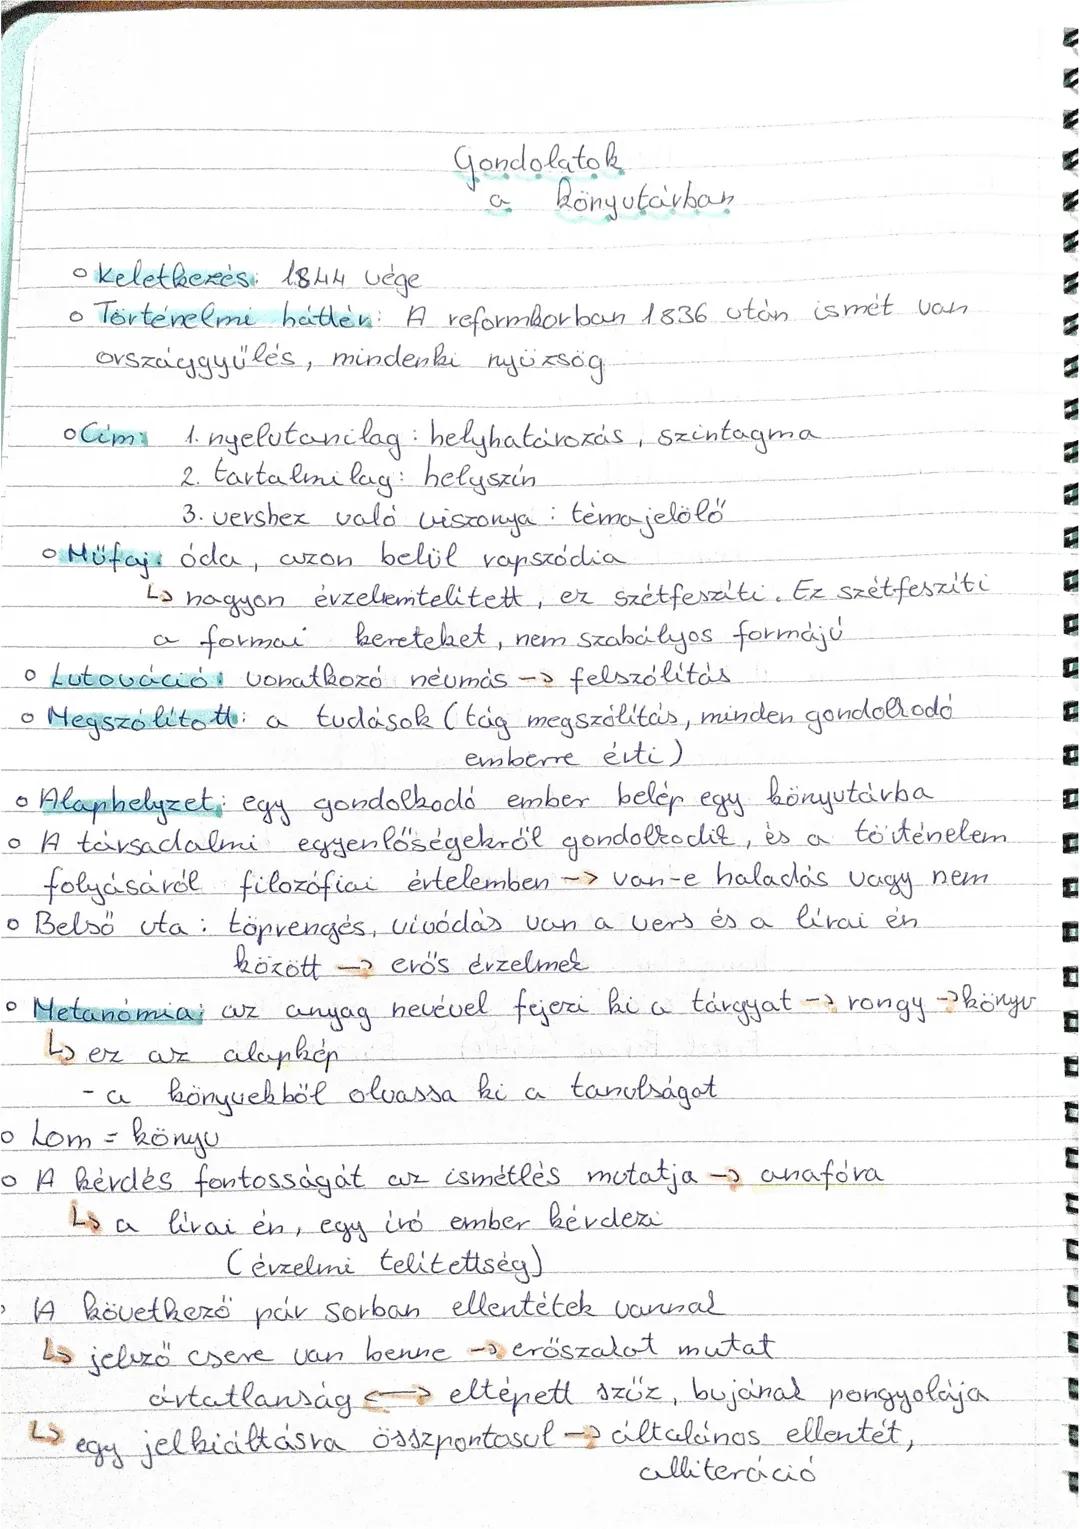 Gondolatok
a könyvtárban
o Keletkezés: 1844 vége
o Történelmi háttér: A reformkorban 1836 után ismét van
országgyűlés, mindenki nyüzsög
o Cím: 1. nyelvtanilag: helyhatározás, szintagma
2. tartalmilag: helyszín
3. vershez való viszonya: témajelölő
o Műfaj: óda, azon belül rapszódia
↳ nagyon érzelemtelített, ez szétfeszíti. Ez szétfeszíti
a formai kereteket, nem szabályos formájú
o Lutováció: vonatkozó névmás -> felszólítás
o Megszólított: a tudások (tág megszólítás, minden gondolkodó
emberre érti)
o Alaphelyzet: egy gondolkodó ember belép egy könyvtárba
o A társadalmi egyenlőségekről gondolkodik, és a történelem
folyásáról filozófiai értelemben -> van-e haladás vagy nem
o Belső uta: töprengés, vívódás van a vers és a lírai én
között -> erős érzelmek
o Metanómia: az anyag nevével fejezi ki a tárgyat -> rongy -> könyv
↳ ez az alapkép
- a könyvekből olvassa ki a tanulságot
o Lom = könyv
o A kérdés fontosságát az ismétlés mutatja -> anafóra
↳ a lírai én, egy író ember kérdezi
(érzelmi telítettség)
A következő pár sorban ellentétek vannak
↳ jelző csere van benne -> erőszakot mutat
ártatlanság <-> eltépett szűz, bujának pongyolája
↳ egy jelkiáltásra összpontosul -> általános ellentét,
alliteráció